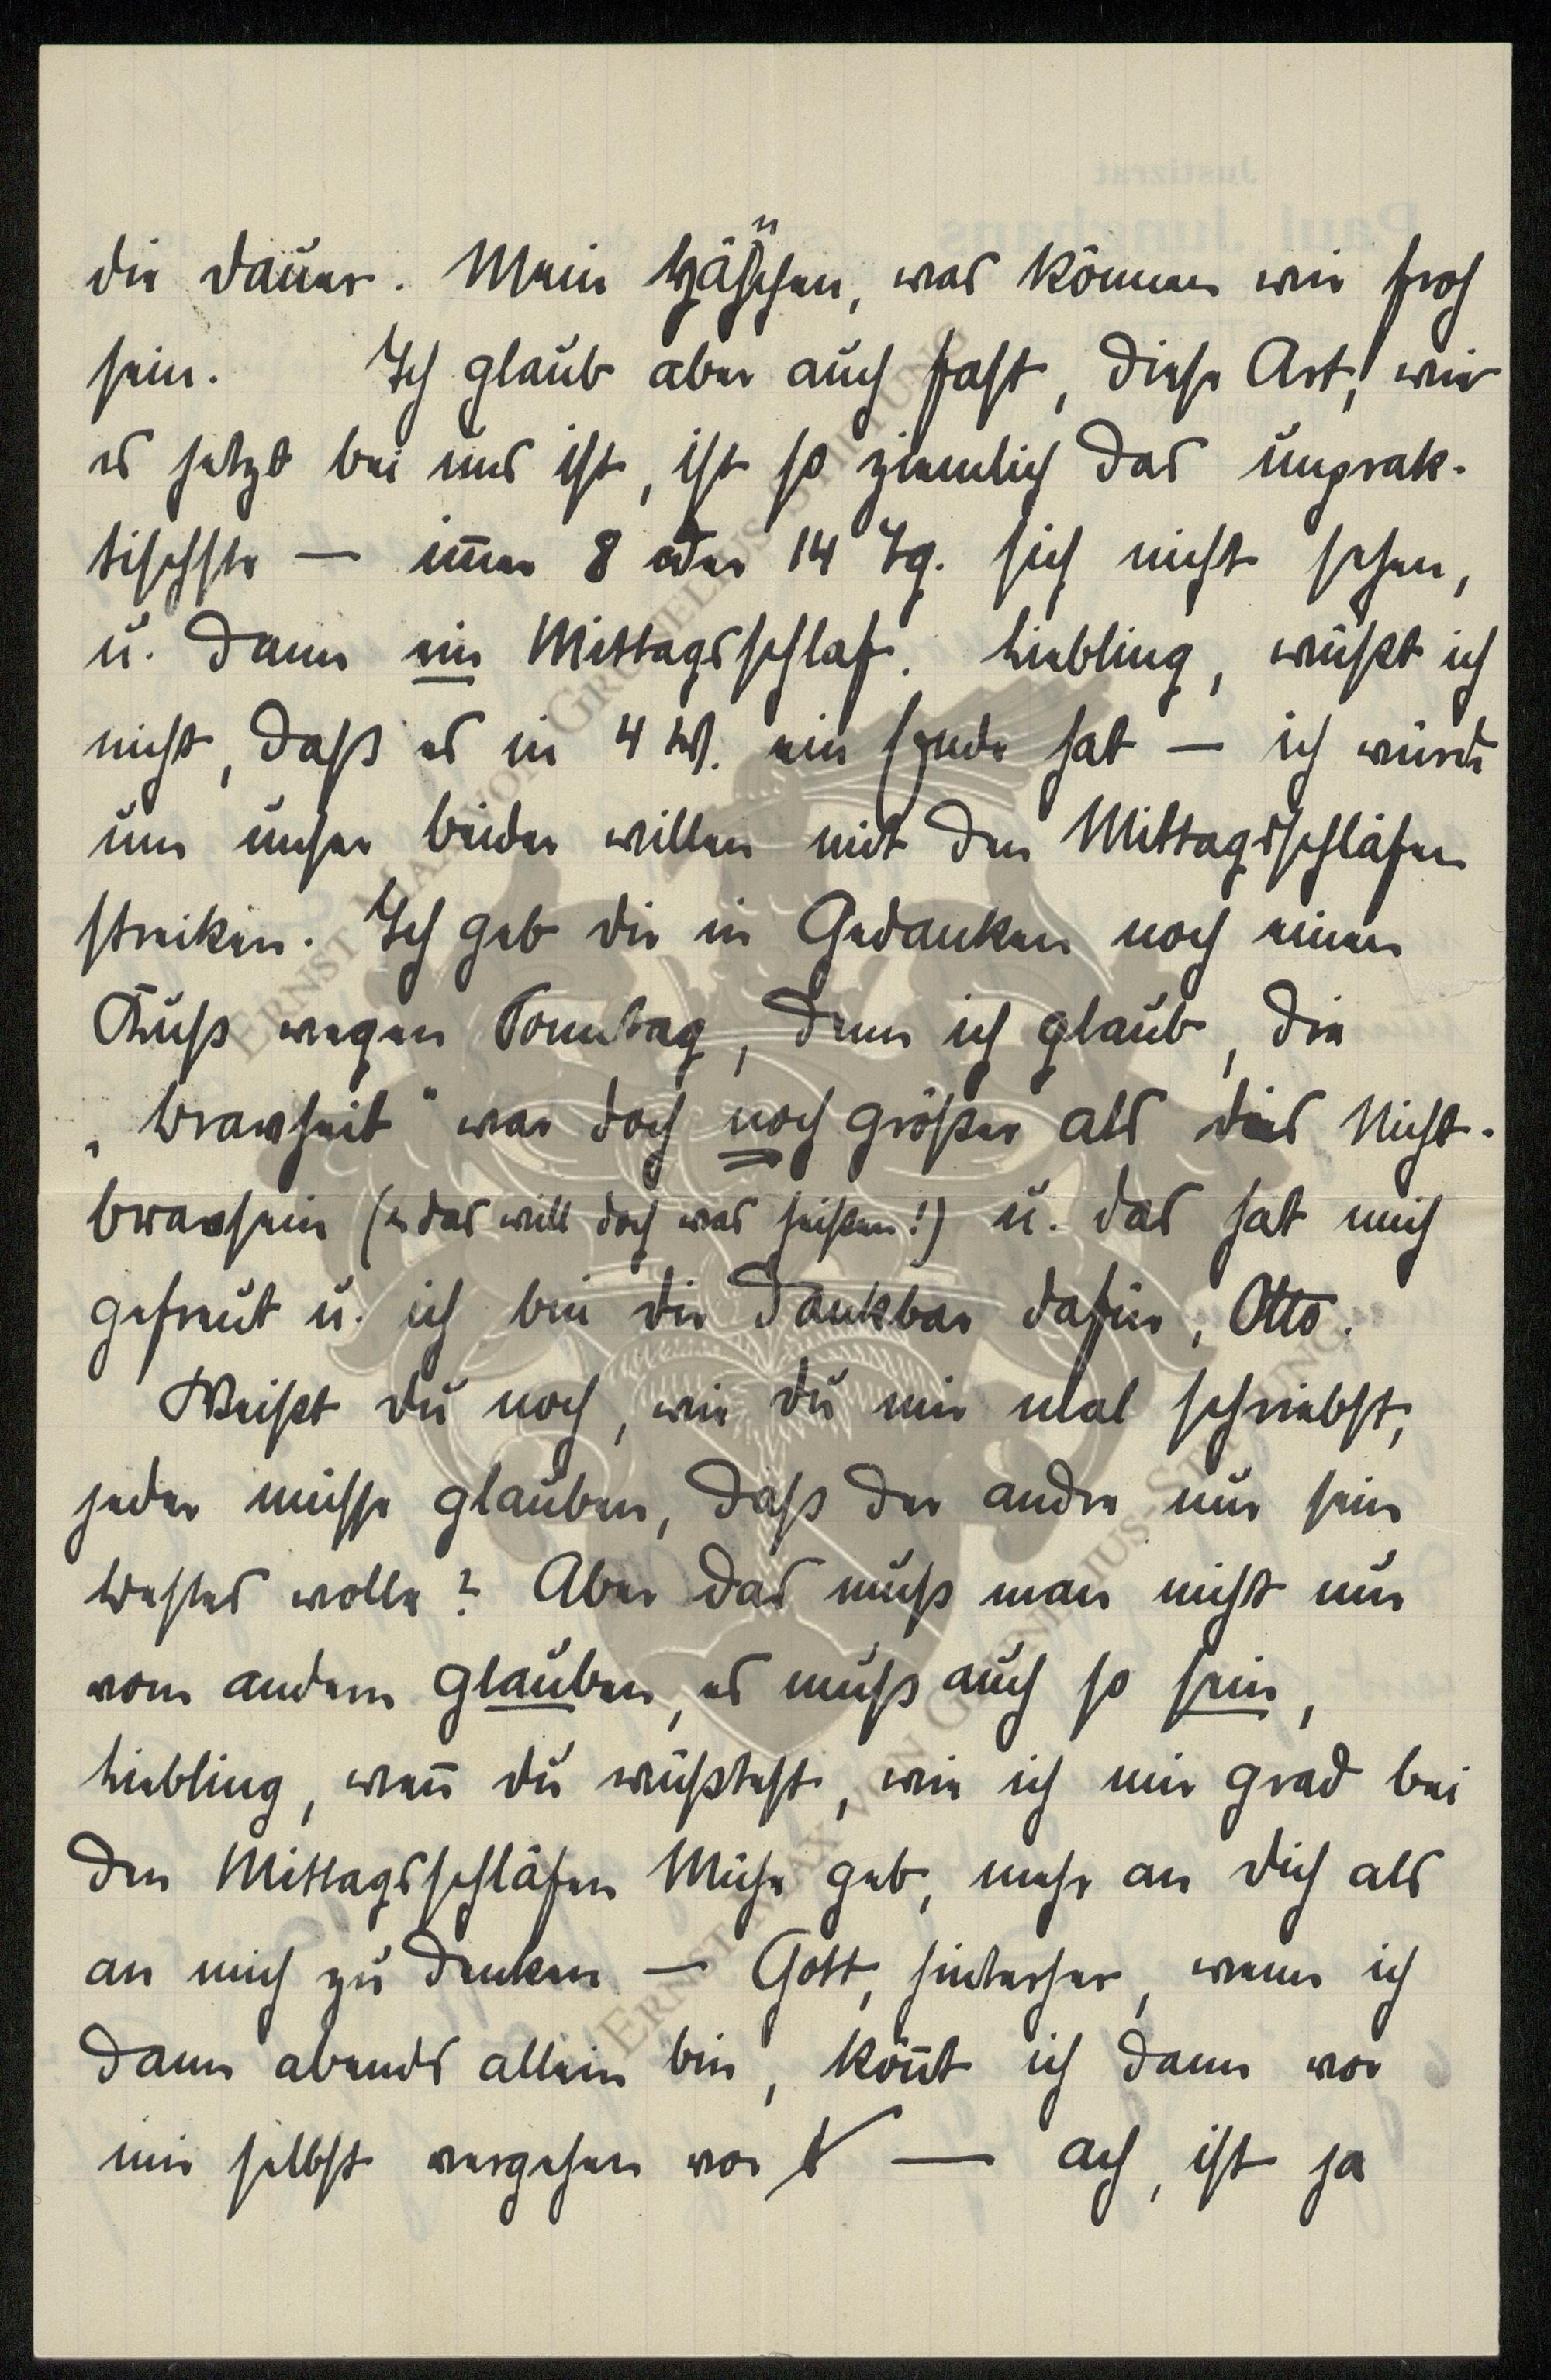 die Dauer. Mein Hänschen, was können wir froh
sein. Ich glaub aber auch fast, diese Art, wie
es jetzt bei uns ist, ist so ziemlich das unprak-
tischste — im̄er 8 oder 14 Tg. sich nicht sehen,
u. dann ein Mittagsschlaf. Liebling, wüßt ich
nicht, daß es in 4 W. ein Ende hat — ich würde
um unser beider willen mit den Mittagsschläfen
streiken. Ich geb dir in Gedanken noch einen
Kuß wegen Sonntag, denn ich glaub, die
„Bravheit" war doch noch größer als das Nicht-
bravsein (u das will doch was heißen!) u. das hat mich
gefreut u. ich bin dir dankbar dafür, Otto.
Weißt du noch, wie du mir mal schriebst,
jeder müsse glauben, daß der andre nur sein
Bestes wolle? Aber das muß man nicht nur
vom andern glauben, es muß auch so sein,
Liebling, wen̄ du wüßtest, wie ich mir grad bei
den Mittagsschläfen Mühe geb, mehr an dich als
an mich zu denken — Gott, hinterher, wenn ich
dann abends allein bin, kön̄t ich dann vor
mir selbst vergehen vor — ach, ist ja
Justizrat
Paul
ERNST MAX VON GRUNELIUS-STIFTUNG
ERNST MAX VON GRUNELIUS-STIFTUNG